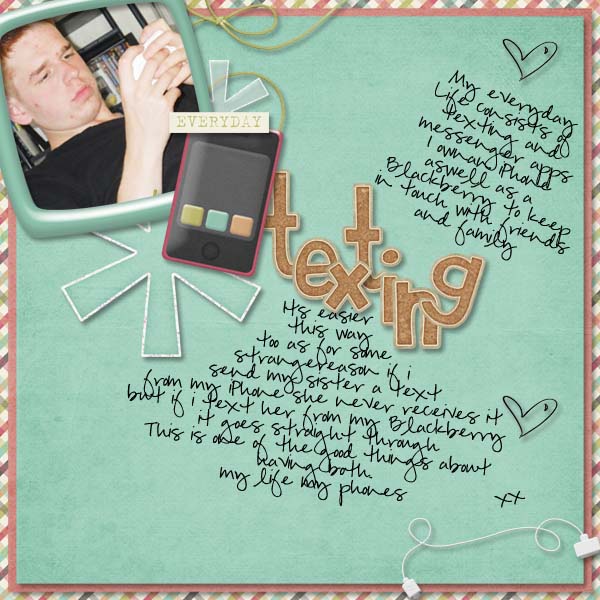 EVERYDAY
My everyday
Life consists of
Texting and
messenger apps
I ownan iPhone
aswell as a
Blackberry to keep
in touch with friends
and family
texting
Its easier
this way
too as for some
strangereason if i
send my sister a text
from my iPhone she never receives it
but if i text her from my Blackberry
it goes straight through
This is one of the good things about
having both.
my life my phones
xx